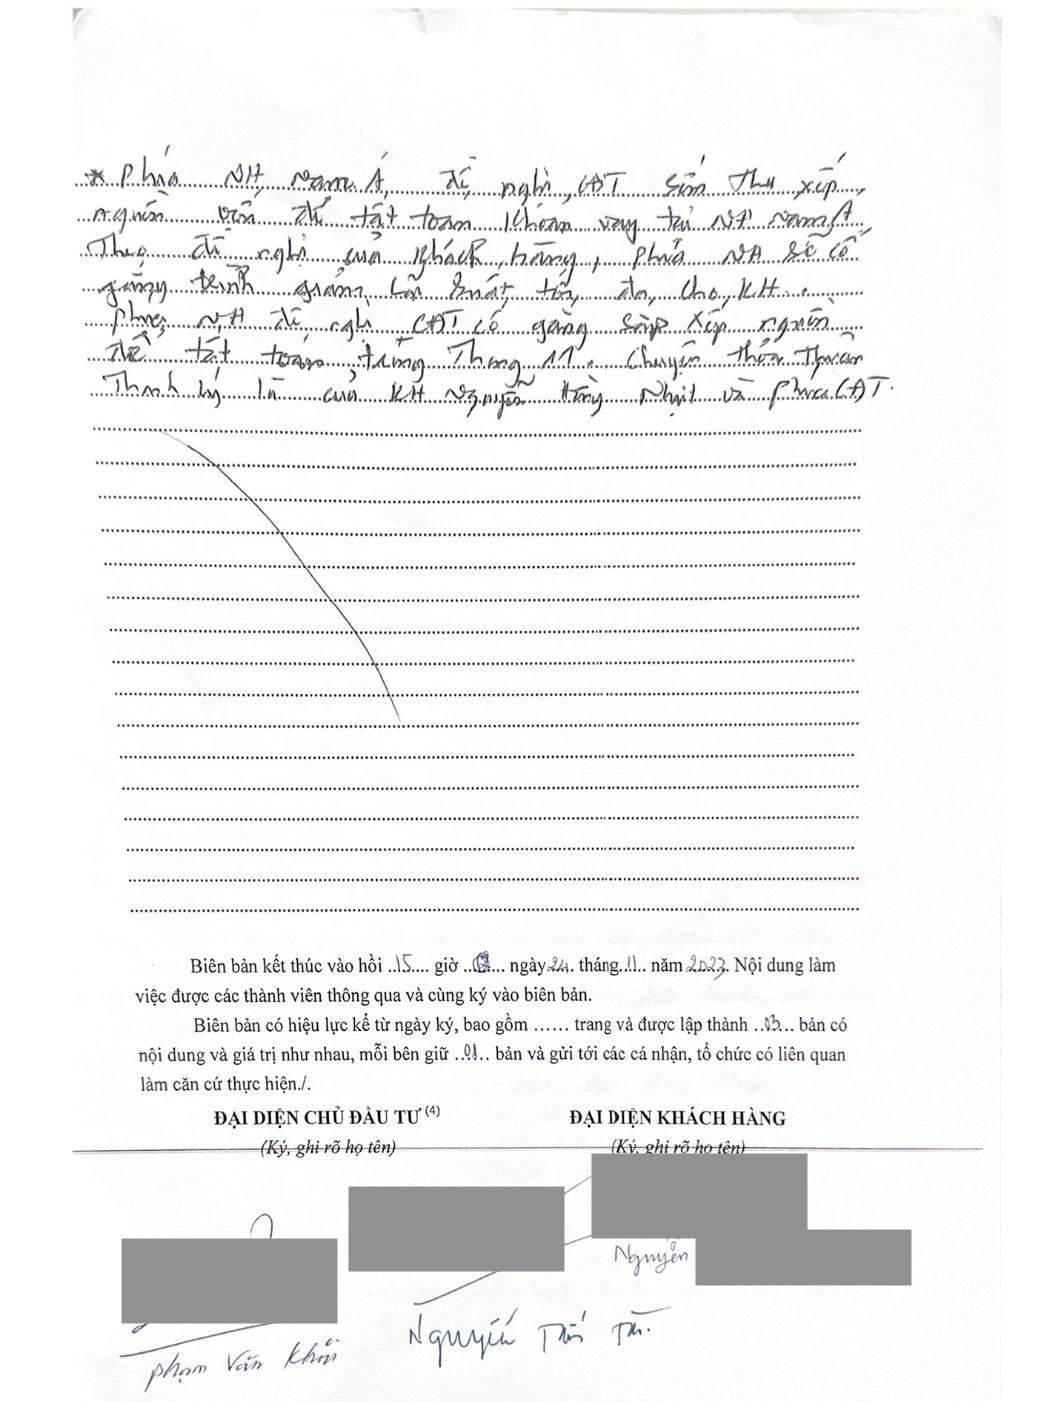 * Phía NH Nam Á, đề nghị CĐT sớm thu xếp
nguồn vốn để tất toán khoản vay tại NH Nam Á
Theo đề nghị của khách hàng, phía NH sẽ cố
gắng trình giảm lãi suất tối đa cho KH.
phía NH đề nghị CĐT cố gắng sắp xếp nguồn
để tất toán trong Tháng 11. Chuyện thỏa thuận
Thanh lý là của KH Nguyễn Hồng Nhựt và phía CĐT.
Biên bản kết thúc vào hồi ..15.... giờ ..... ngày 24. tháng..11.. năm 2023. Nội dung làm
việc được các thành viên thông qua và cùng ký vào biên bản.
Biên bản có hiệu lực kể từ ngày ký, bao gồm ...... trang và được lập thành ..03... bản có
nội dung và giá trị như nhau, mỗi bên giữ ..01.. bản và gửi tới các cá nhân, tổ chức có liên quan
làm căn cứ thực hiện./.
ĐẠI DIỆN CHỦ ĐẦU TƯ (4) ĐẠI DIỆN KHÁCH HÀNG
(Ký, ghi rõ họ tên) (Ký, ghi rõ họ tên)
Nguyễn
Phạm Văn Khôi Nguyễn